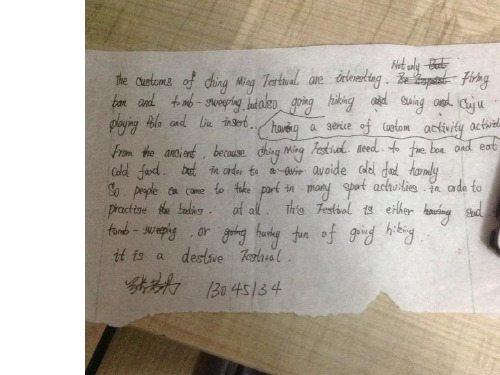 Not only
The customs of ching Ming Festival are interesting. Firing
ban and tomb-sweeping, but also going hiking and swing and Cuju
playing Polo and Liu insert. having a serice of custom activity
From the ancient, because ching Ming Festival need to fire ban and eat
cold food. in order to avoide cold foot harmly
So people come to take part in many sport activities. in orde to
practise bodies. at all. This Festival is either sad
tomb-sweeping, or having fun of going hiking.
it is a destive Festival.
13045134